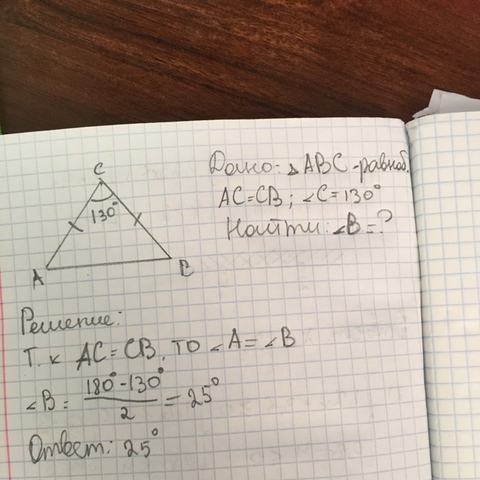 C
130°
A
B
Дано: △ABC - равноб.
AC=CB; ∠C=130°
Найти: ∠B=?
Решение:
Т.к AC=CB, то ∠A=∠B
∠B = (180°-130°)/2 = 25°
Ответ: 25°